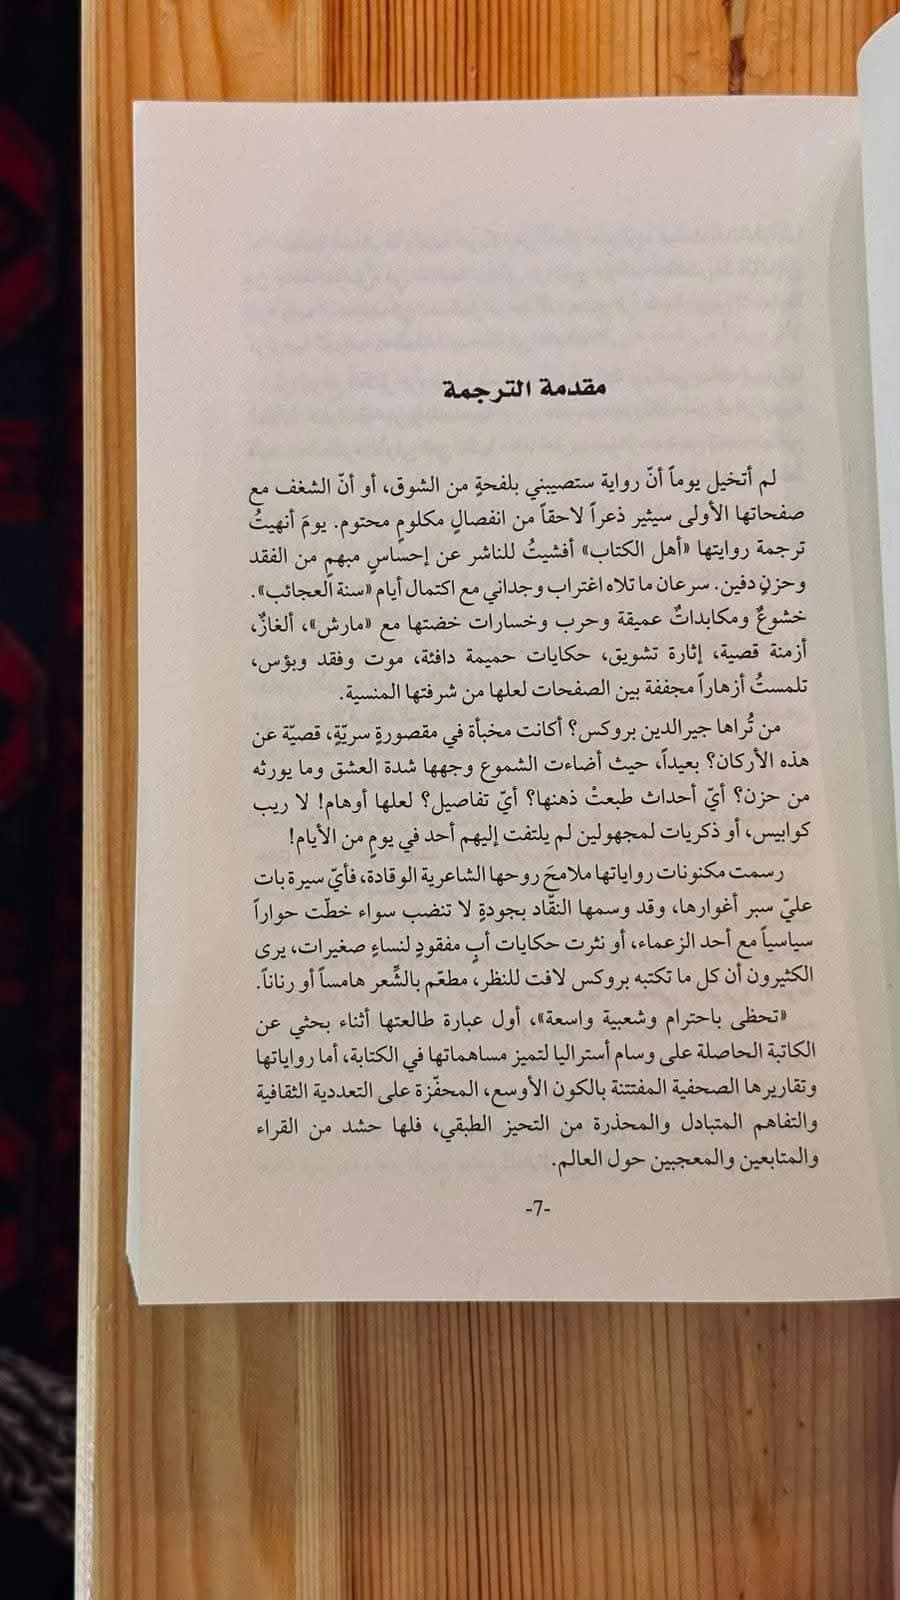 مقدمة الترجمة
لم أتخيل يوماً أنّ رواية ستصيبني بلفحةٍ من الشوق، أو أنّ الشغف مع
صفحاتها الأولى سيثير ذعراً لاحقاً من انفصالٍ مكلومٍ محتوم. يومَ أنهيتُ
ترجمة روايتها «أهل الكتاب» أفشيتُ للناشر عن إحساسٍ مبهمٍ من الفقد
وحزنٍ دفين. سرعان ما تلاه اغتراب وجداني مع اكتمال أيام «سنة العجائب».
خشوعٌ ومكابداتٌ عميقة وحرب وخسارات خضتها مع «مارش»، ألغازٌ،
أزمنة قصية، إثارة تشويق، حكايات حميمة دافئة، موت وفقد وبؤس،
تلمستُ أزهاراً مجففة بين الصفحات لعلها من شرفتها المنسية.
من تُراها جيرالدين بروكس؟ أكانت مخبأة في مقصورةٍ سريّةٍ، قصيّة عن
هذه الأركان؟ بعيداً، حيث أضاءت الشموع وجهها شدة العشق وما يورثه
من حزن؟ أيّ أحداث طبعتْ ذهنها؟ أيّ تفاصيل؟ لعلها أوهام! لا ريب
كوابيس، أو ذكريات لمجهولين لم يلتفت إليهم أحد في يومٍ من الأيام!
رسمت مكنونات رواياتها ملامحَ روحها الشاعرية الوقادة، فأيّ سيرة بات
عليّ سبر أغوارها، وقد وسمها النقّاد بجودةٍ لا تنضب سواء خطّت حواراً
سياسياً مع أحد الزعماء، أو نثرت حكايات أبٍ مفقودٍ لنساءٍ صغيرات، يرى
الكثيرون أن كل ما تكتبه بروكس لافت للنظر، مطعّم بالشِّعر هامساً أو رناناً.
«تحظى باحترام وشعبية واسعة»، أول عبارة طالعتها أثناء بحثي عن
الكاتبة الحاصلة على وسام أستراليا لتميز مساهماتها في الكتابة، أما رواياتها
وتقاريرها الصحفية المفتتنة بالكون الأوسع، المحفّزة على التعددية الثقافية
والتفاهم المتبادل والمحذرة من التحيز الطبقي، فلها حشد من القراء
والمتابعين والمعجبين حول العالم.
-7-